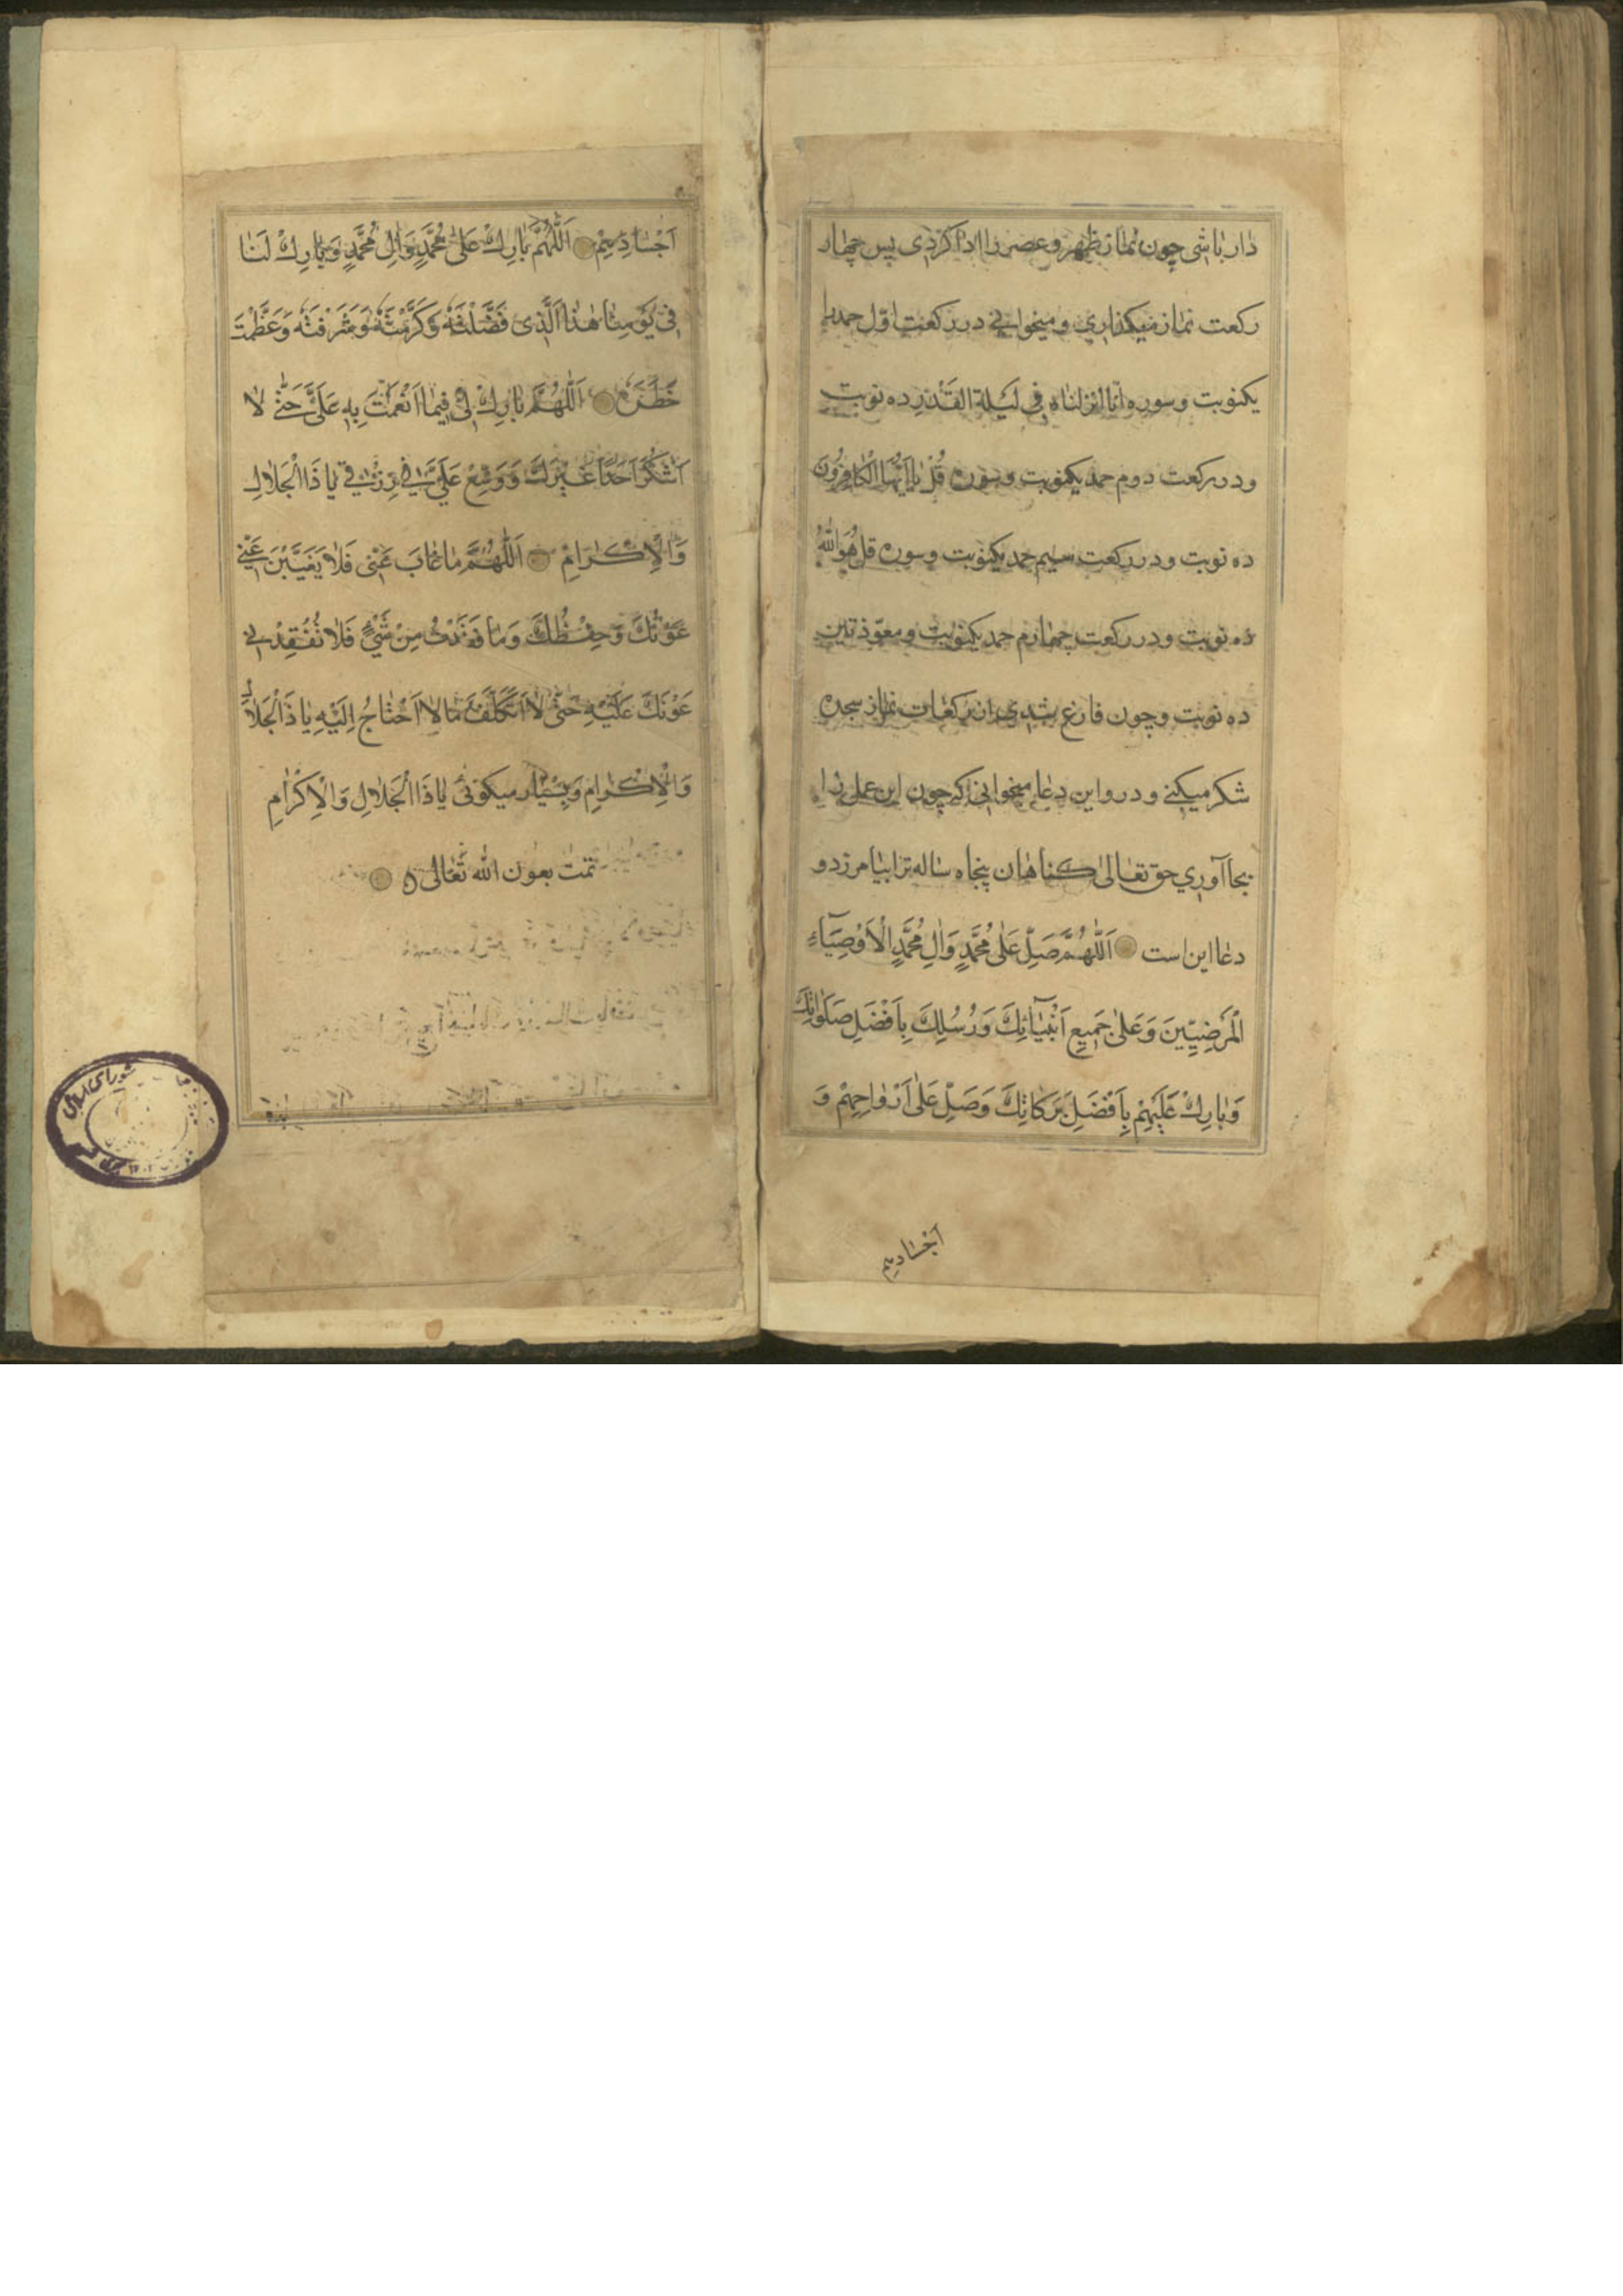 دار باشی چون نماز ظهر و عصر را ادا کردی پس چهار
رکعت نماز میکذاری و میخوانی در رکعت اول حمد را
یکنوبت و سوره انا انزلناه فی لیلة القدر ده نوبت
و در رکعت دوم حمد یکنوبت و سوره قُلْ یٰا اَیُّهَا الْکٰافِرُونَ
ده نوبت و در رکعت سیم حمد یکنوبت و سوره قل هُوَ اللّٰهُ
ده نوبت و در رکعت چهارم حمد یکنوبت و معوّذتین
ده نوبت و چون فارغ شدی از رکعات نماز سجده
شکر میکنی و درو این دعا میخوانی که چون این عمل را
بجا آوری حق تعالیٰ کناهان پنجاه ساله ترا بیامرزد و
دعا این است اَللّٰهُمَّ صَلِّ عَلٰی مُحَمَّدٍ وَاٰلِ مُحَمَّدٍ الْاَوْصِیَآءِ
الْمَرْضِیِّینَ وَعَلیٰ جَمِیعِ اَنْبِیٰآئِکَ وَرُسُلِکَ بِاَفْضَلِ صَلَوٰاتِکَ
وَبٰارِکْ عَلَیْهِمْ بِاَفْضَلِ بَرَکاتِکَ وَصَلِّ عَلٰی اَرْوٰاحِهِمْ وَ
اَجْسٰادِهِمْ
اَجْسٰادِهِمْ اَللّٰهُمَّ بٰارِکْ عَلیٰ مُحَمَّدٍ وَاٰلِ مُحَمَّدٍ وَبٰارِکْ لَنٰا
فِی یَوْمِنٰا هٰذَا الَّذِی فَضَّلْتَهُ وَکَرَّمْتَهُ وَشَرَّفْتَهُ وَعَظَّمْتَ
خَطَرَهُ اَللّٰهُمَّ بٰارِکْ لِی فِیمٰا اَنْعَمْتَ بِهِ عَلَیَّ حَتّٰی لٰا
اَشْکُرَ اَحَدًا غَیْرَکَ وَوَسِّعْ عَلَیَّ فِی رِزْقِی یٰا ذَا الْجَلٰالِ
وَالْاِکْرٰامِ اَللّٰهُمَّ مٰا غٰابَ عَنّی فَلٰا یَغِیبَنَّ عَنِّی
عَوْنُکَ وَحِفْظُکَ وَمٰا فَقَدْتُ مِنْ شَیْءٍ فَلٰا تُفْقِدْنِی
عَوْنَکَ عَلَیْهِ حَتّٰی لٰا اَتَکَلَّفَ مٰا لٰا اَحْتٰاجُ اِلَیْهِ یٰا ذَا الْجَلٰالِ
وَالْاِکْرٰامِ وَبسیار میکوئی یٰا ذَا الْجَلٰالِ وَالْاِکْرٰامِ
تمت بعون اللّٰه تعالی
شورای اسلامی